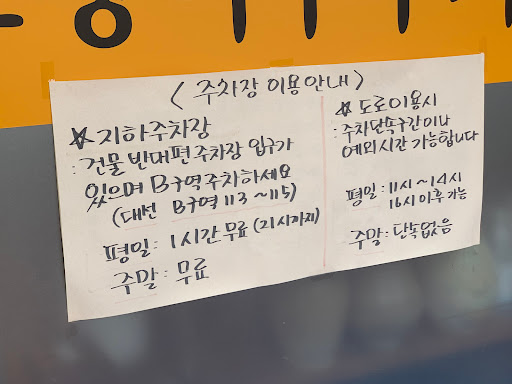 < 주차장 이용안내 >
☆ 지하주차장
: 건물 반대편 주차장 입구가
있으며 B구역 주차하세요
(대선 B구역 113~115)
평일 : 1시간 무료 (21시까지)
주말 : 무료
☆ 도로이용시
: 주차단속구간이나
예외시간 가능합니다
평일 : 11시~14시
16시 이후 가능
주말 : 단속없음